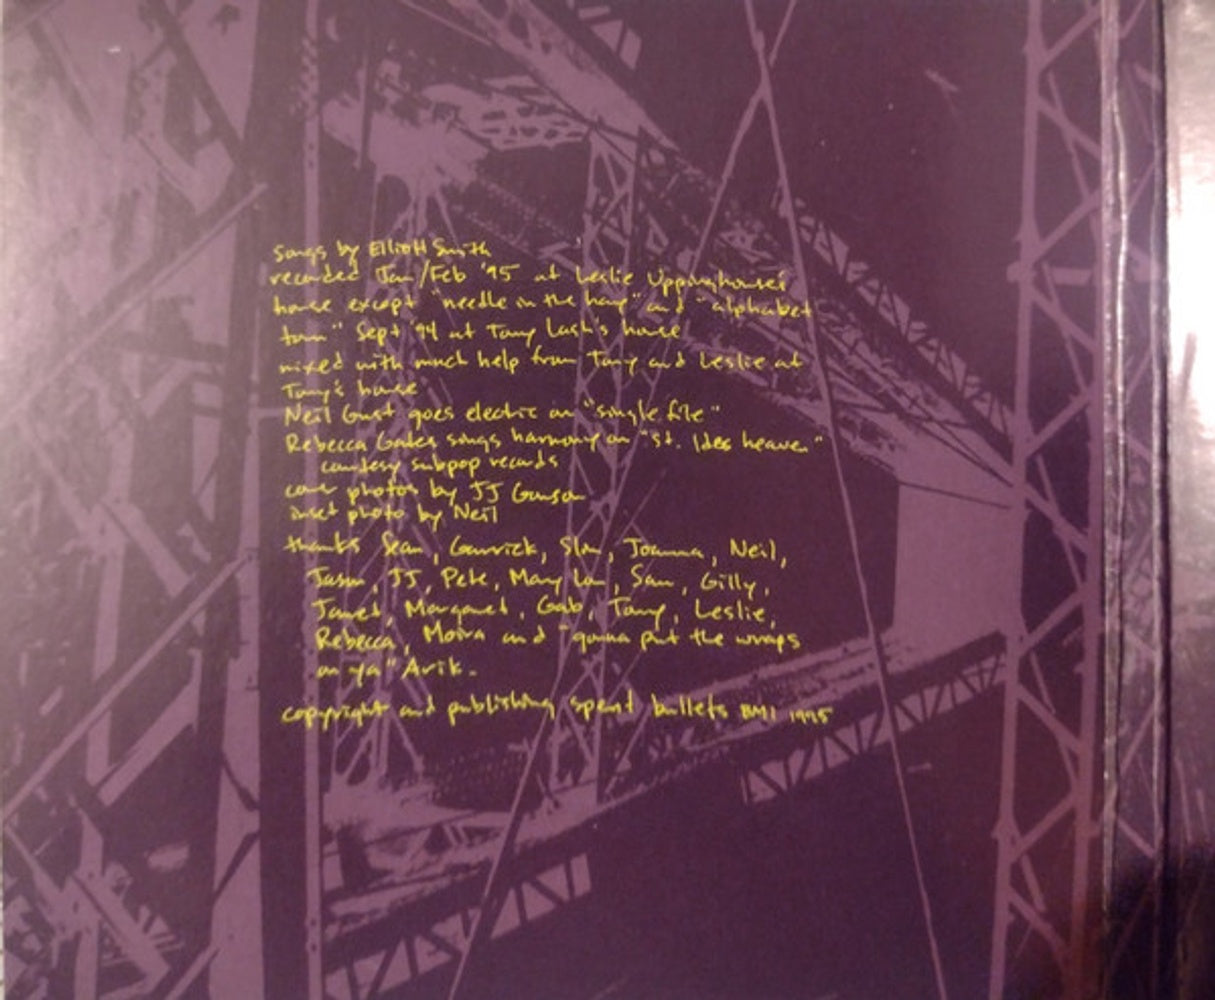 songs by Elliott Smith
recorded Jan/Feb '95 at Leslie Uppinghouse's
house except "needle in the hay" and "alphabet
town" Sept '94 at Tony Lash's house
mixed with much help from Tony and Leslie at
Tony's house
Neil Gust goes electric on "single file"
Rebecca Gates songs harmony on "st. Ides heaven"
courtesy subpop records
cover photos by JJ Gonson
inset photo by Neil
thanks Sean, Garrick, Slim, Joanna, Neil,
Jason, JJ, Pete, Mary Lou, Sam, Gilly,
Janet, Margaret, Gab, Tony, Leslie,
Rebecca, Moira and "gonna put the wraps
on ya" Avik.
copyright and publishing spent bullets BMI 1995